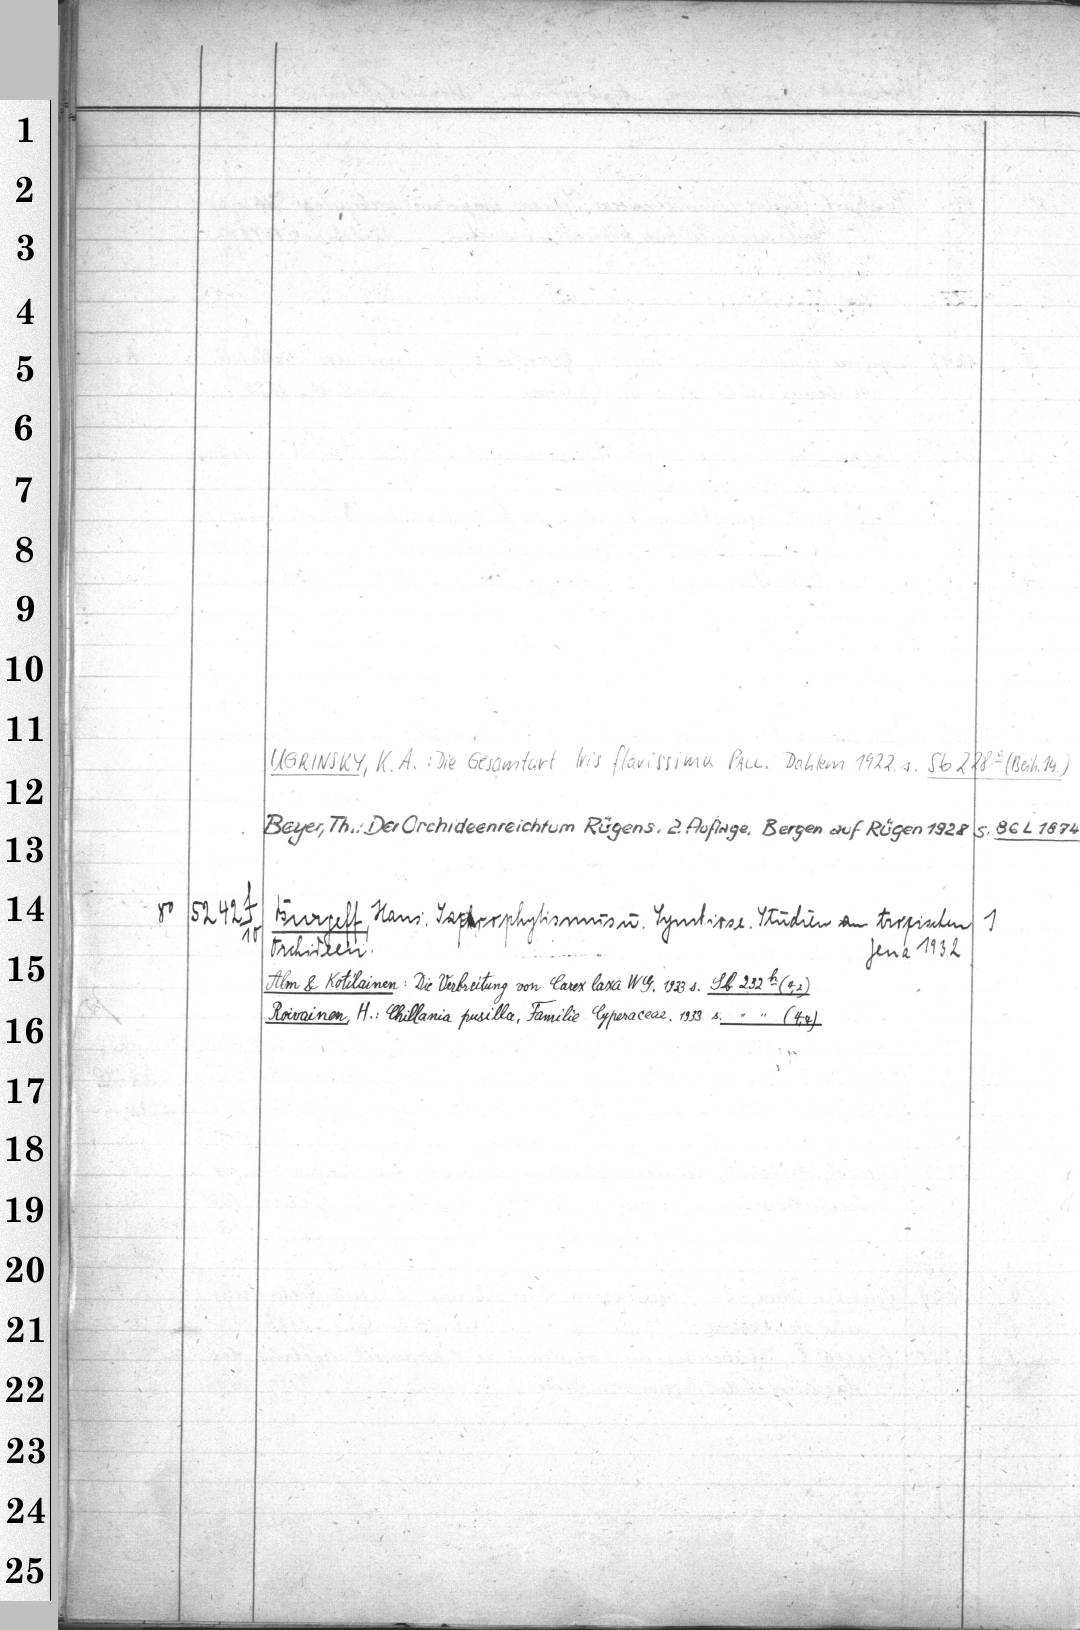 1
2
3
4
5
6
7
8
9
10
11
UGRINSKY, K. A.: Die Gesamtart Iris flavissima PALL. Dahlem 1922 s. Sb 228 (Beih. 14.)
12
Beyer, Th.: Der Orchideenreichtum Rügens. 2. Auflage. Bergen auf Rügen 1928 s. BGL 1874
13
14
8° 5242 f/10 Burgeff, Hans. Saprophytismus u. Symbiose. Studien an tropischen 1
Orchideen. Jena 1932
15
Alm & Kotilainen: Die Verbreitung von Carex laxa Wg. 1933 s. Sb 232 h (4,2)
Roivainen, H.: Chillania pusilla, Familie Cyperaceae. 1933 s. " " (4,4)
16
17
18
19
20
21
22
23
24
25